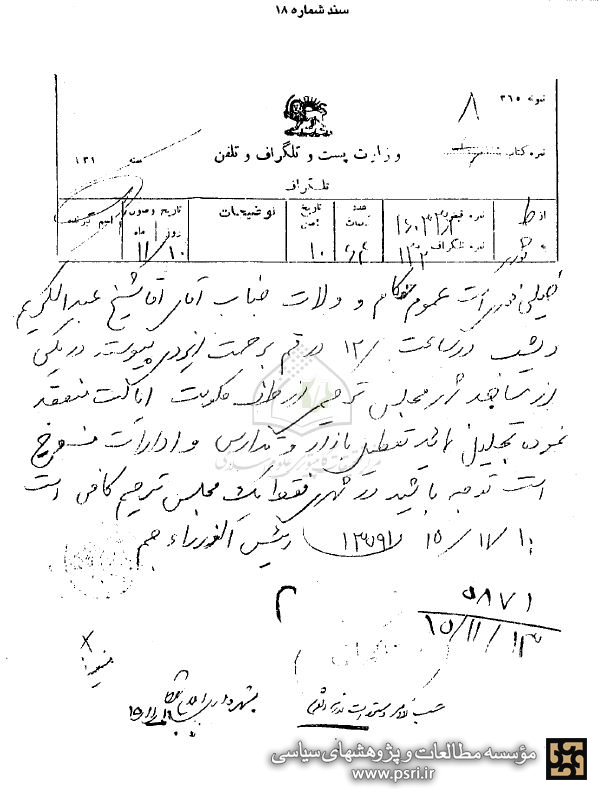 سند شماره ۱۸
نمونه ۳۶۵
۸
نمره کتاب
وزارت پست و تلگراف و تلفن
سنه ۱۳۱
تلگراف
از ط
نمره قبض
عدد کلمات
تاریخ اصل
توضیحات
تاریخ وصول
اسم گیرنده
به
نمره تلگراف ۱۲۲
۱۰
روز ماه
۱۰/۱۱
خیلی فوری است عموم حکام و ولات جناب آقای آقا شیخ عبدالکریم
دیشب در ساعت ۱۲/ در قم برحمت ایزدی پیوسته در یکی
از مساجد مجلس ترحیم از طرف حکومت ایالت منعقد
نموده تجلیل نمائید تعطیل بازار و مدارس و ادارات ممنوع
است توجه باشید در شهری فقط یک مجلس ترحیم کافی است
۱۵/۱۱/۱۰ ۱۳۵۹۱ رئیس الوزراء جم
۲
۵۸۷۱
۱۵/۱۱/۱۳
شهرداری
مؤسسه مطالعات و پژوهشهای سیاسی
www.psri.ir